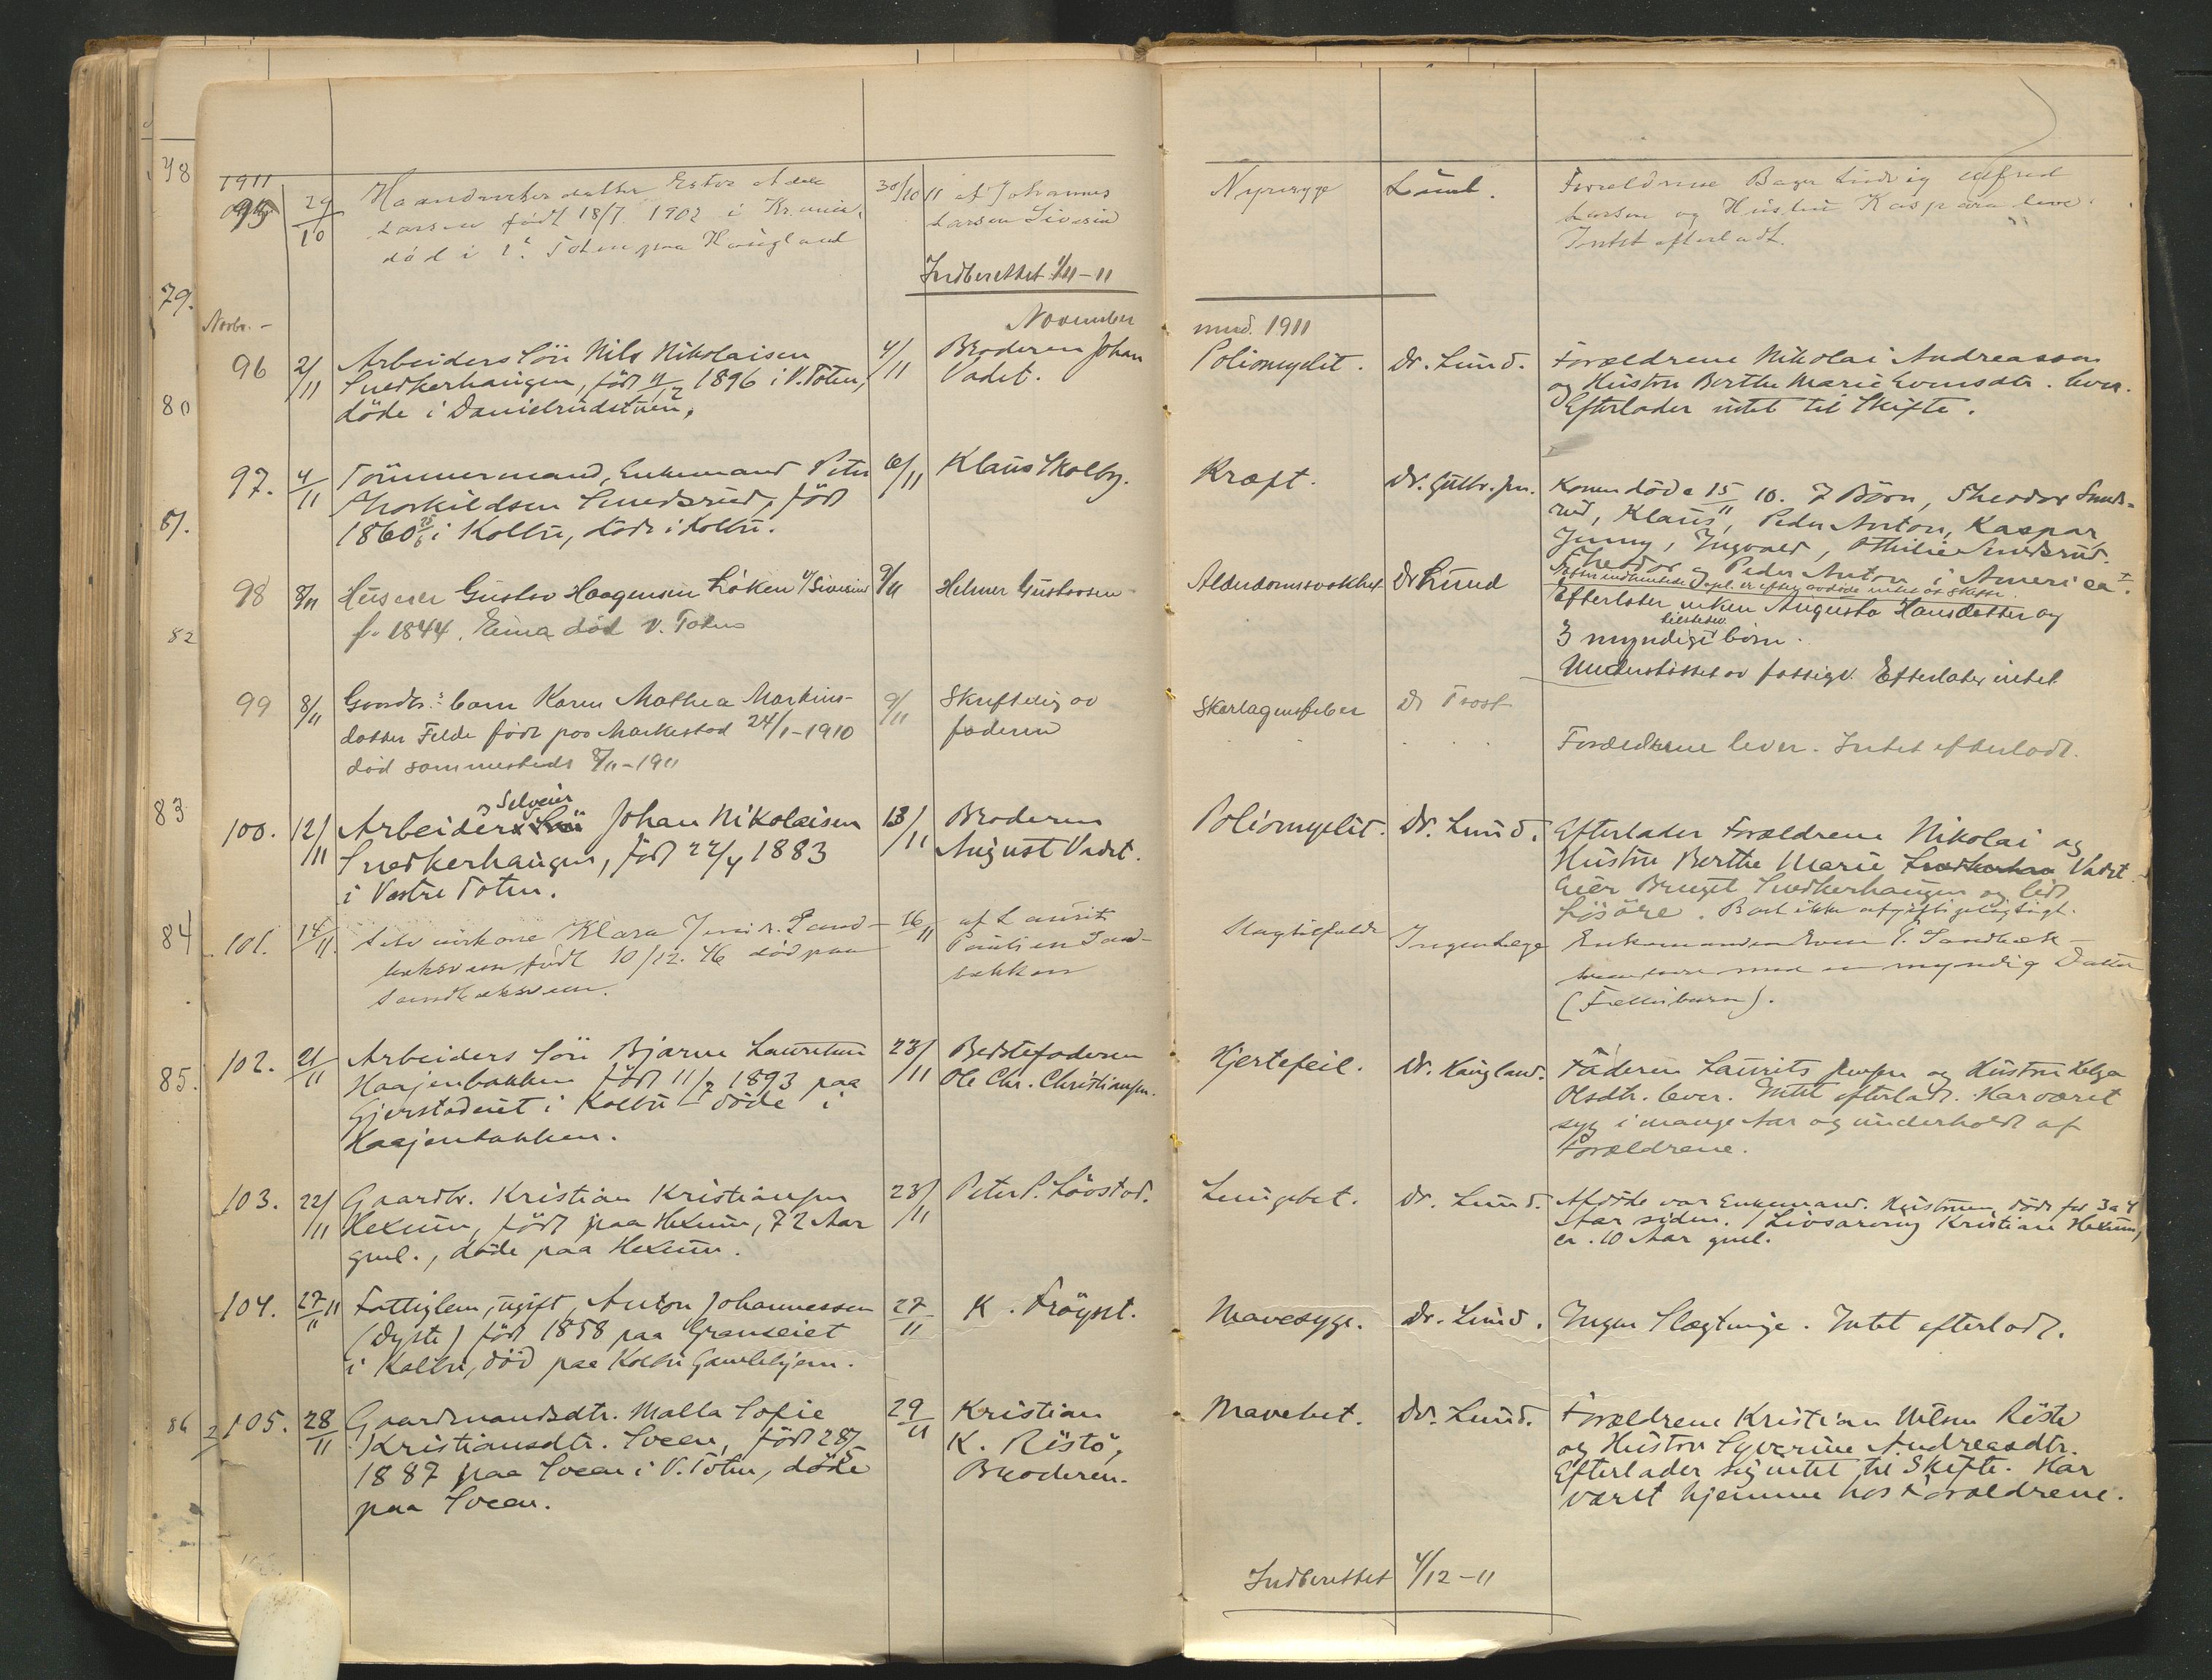 78
79.
80
81.
82
83
84
85.
86
1911
95
29/10
Haandverkerdatter Ester Adele
Larsen født 18/7 1902 i Kr.ania,
død i V. Toten paa Haugland
30/10 11 af Johannes
Larsen Sivesind
Indberettet 1/11-11
Nyresyge
Lund.
Forældrene Bager Ludvig Alfred
Larsen og Hustru Kaspara lever.
Intet efterladt.
Novbr. -
November
mnd. 1911
96
2/11
Arbeiders Søn Nils Nikolaisen
Snedkerhaugen, født 4/12 1896 i V. Toten,
døde i Danielrudstuen.
4/11
Broderen Johan
Vadet.
Poliomyelit.
Dr. Lund.
Forældrene Nikolai Andreassen
og Hustru Berthe Marie Evensdtr. lever.
Efterlader intet til Skifte.
97.
4/11
Tömmermand, Enkemand Peter
Thorkildsen Smedsrud, født
1860 25/6 i Kolbu, døde i Kolbu.
6/11
Klaus Skolby.
Kræft.
Dr. Guttr. jun.
Konen døde 15/10. 7 Børn, Theodor Smeds-
rud, Klaus ", Peder Anton, Kaspar
Jenny, Ingvald, Othilie Smedsrud.
Theodor og Peder Anton i America.
98
8/11
Huseier Gustav Haagensen Løken u/Sivesind
f. 1844, Eina død V. Toten
9/11
Helmer Gustavsen
Alderdomssvakhet
Dr Lund
Efterlater enken Augusta Hansdatter og
3 myndige tilstedev. børn.
Understøttet av fattigv. Efterlater intet
99
8/11
Gaardbr.: barn Karen Mathea Markus-
datter Felde født paa Markestad 24/1-1910
død sammesteds 8/11-1911
9/11
Skriftelig av
faderen
Skarlagensfeber
Dr Trost
Forældrene lever. Intet efterladt.
100.
12/11
Arbeider og Selveier Johan Nikolaisen
Snedkerhaugen, født 22/4 1883
i Vestre Toten.
13/11
Broderen
August Vadet.
Poliomyelit.
Dr. Lund.
Efterlader Forældrene Nikolai og
Hustru Berthe Marie Snedkerhau Vadet.
Eier Bruget Snedkerhaugen og lidt
Løsøre. Boet ikke afgiftspligtigt.
101.
14/11.
Selveierkone Klara Jensdr. Sand-
baksveen, født 10/12. 46 død paa
Sandbaksveen.
16/11
af Laurits
Paulsen Sand-
bakken
Slagtilfælde
Ingen Læge
Enkemanden Even P. Sandbæk
med en myndig Datter
(Fællesbarn).
102.
21/11
Arbeiders Søn Bjarne Lauritsen
Haajenbakken født 11/7 1893 paa
Gjerstadeiet i Kolbu - døde i
Haajenbakken.
23/11
Bedstefaderen
Ole Chr. Christiansen.
Hjertefeil.
Dr. Haugland.
Faderen Laurits Jensen og Hustru Helga
Olsdtr. lever. Intet efterladt. Har været
syg i mange Aar og underholdt af
Forældrene.
103.
22/11
Gaardbr. Kristian Kristiansen
Hexum, født paa Hexum, 72 Aar
gml., døde paa Hexum.
23/11
Peter P. Lövstad.
Lungebet.
Dr. Lund.
Afdøde var Enkemand. Hustruen døde for 3 a 4
Aar siden. 1 Livsarving Kristian Hexum,
ca. 10 Aar gml.
104.
27/11 11
Fattiglem, ugift, Anton Johannessen
(Dyste) født 1858 paa Granseiet
i Kolbu, død paa Kolbu Gamlehjem.
27/11
K. Frøyset.
Mavesyge.
Dr. Lund.
Ingen Slægtninge. Intet efterladt.
105.
28/11
Gaardmandsdtr. Malla Sofie
Kristiansdtr. Sveen, født 28/5
1887 paa Sveen i V. Toten, døde
paa Sveen.
29/11
Kristian
K. Röstö,
Broderen.
Mavebet.
Dr. Lund.
Forældrene Kristian Nilsen Röstö
og Hustru Syverine Andreasdtr.
Efterlader sig intet til Skifte. Har
været hjemme hos Forældrene.
Indberettet 4/12-11